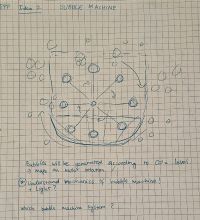 EPP Idea 2 BUBBLE MACHINE
Bubbles will be generated according to CO2 levels
→ maps on motor rotation
Understand mechanics of bubble machine!
+ Light?
which bubble machine system?